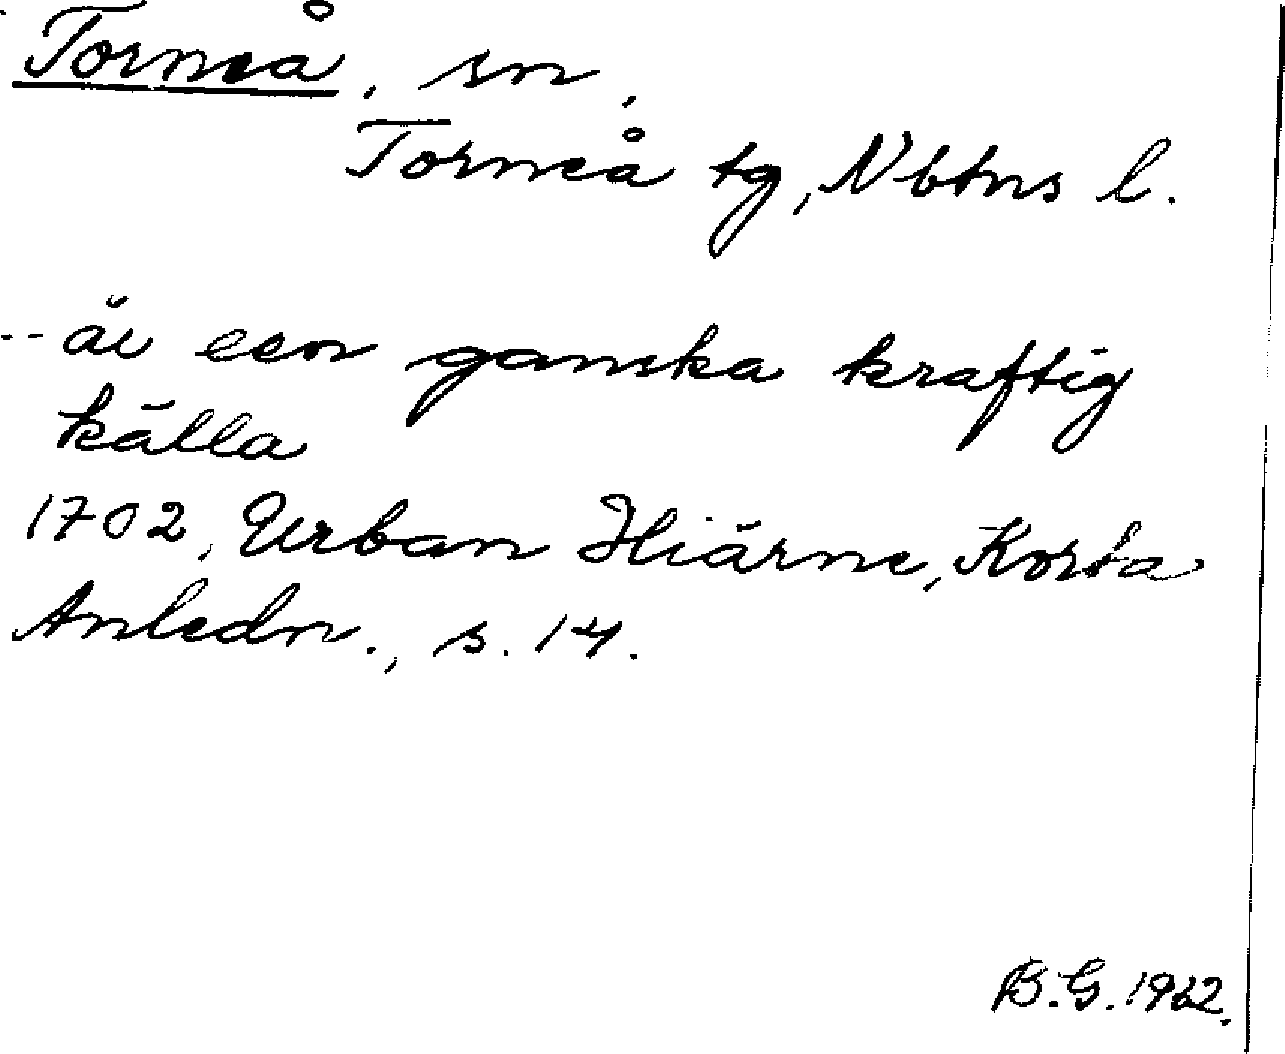 Torneå, sn,
Torneå tg, Nbtns l.
-- är een ganska kraftig
källa
1702, Urban Hiärne, Korta
Anledn., s. 14.
B.G. 1962.